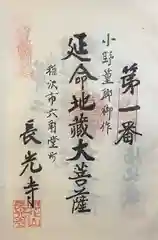 第一番
小野篁卿御作
延命地蔵大菩薩
稲沢市六角堂町
長光寺